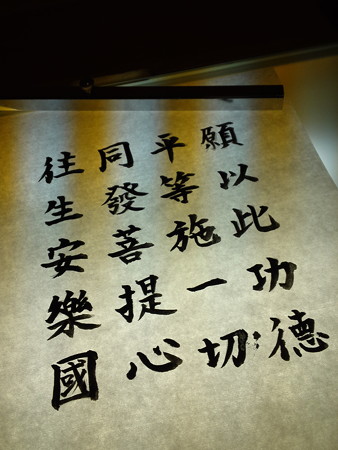 願以此功德
平等施一切
同發菩提心
往生安樂國